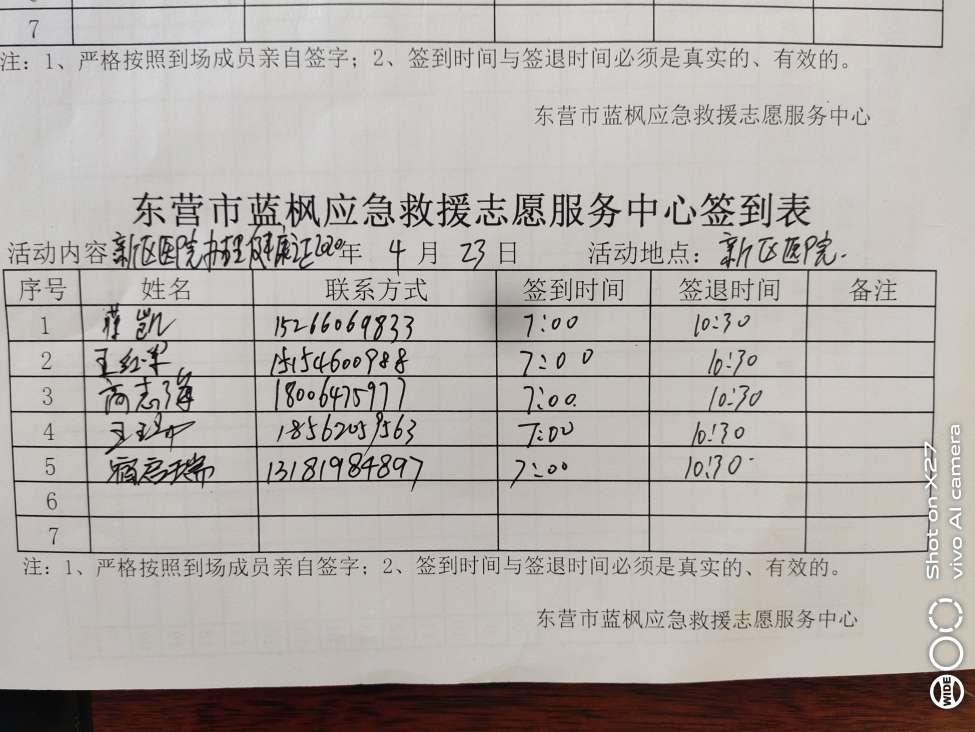 7
注：1、严格按照到场成员亲自签字；2、签到时间与签退时间必须是真实的、有效的。
东营市蓝枫应急救援志愿服务中心
东营市蓝枫应急救援志愿服务中心签到表
活动内容 新区医院办理健康证 2020年 4 月 23 日 活动地点：新区医院.
序号 姓名 联系方式 签到时间 签退时间 备注
1 凯 15266069833 7:00 10:30
2 王红军 15154600988 7:00 10:30
3 志海 18006475977 7:00 10:30
4 王 18562059563 7:00 10:30
5 宿 瑞 13181984897 7:00 10:30
6
7
注：1、严格按照到场成员亲自签字；2、签到时间与签退时间必须是真实的、有效的。
东营市蓝枫应急救援志愿服务中心
Shot on X27
vivo AI camera
WIDE